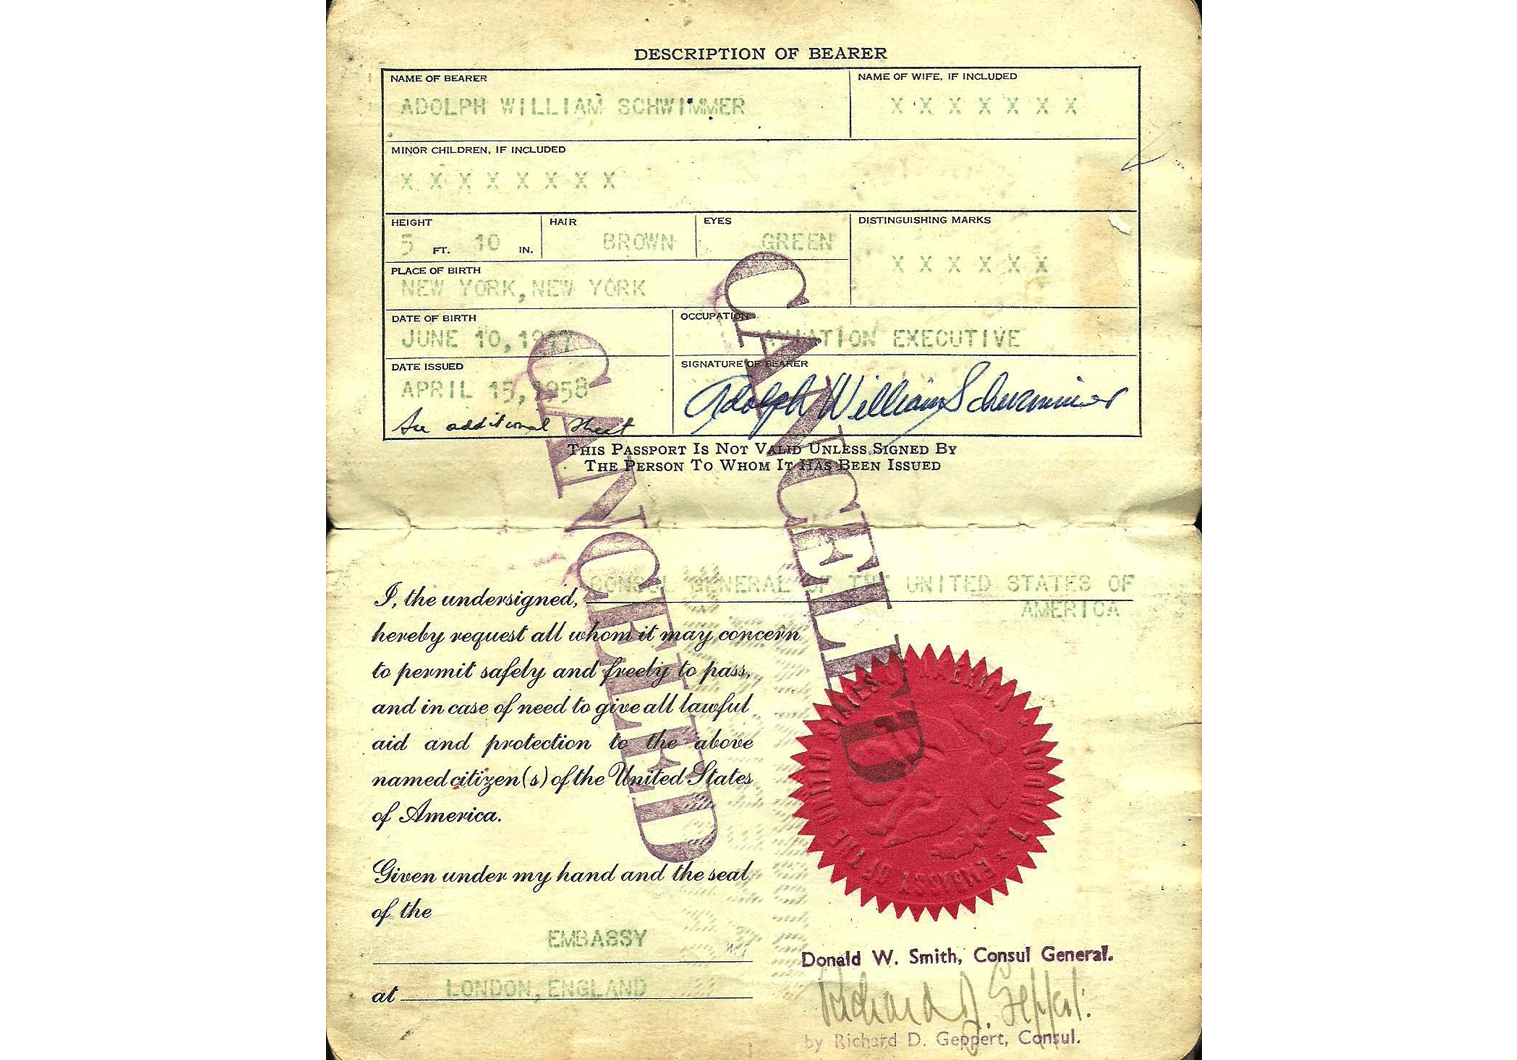 DESCRIPTION OF BEARER
NAME OF BEARER
ADOLPH WILLIAM SCHWIMMER
NAME OF WIFE, IF INCLUDED
X X X X X X X
MINOR CHILDREN, IF INCLUDED
X X X X X X X X
HEIGHT
5 FT. 10 IN.
HAIR
BROWN
EYES
GREEN
DISTINGUISHING MARKS
X X X X X X
PLACE OF BIRTH
NEW YORK, NEW YORK
DATE OF BIRTH
JUNE 10,
OCCUPATION
AVIATION EXECUTIVE
DATE ISSUED
APRIL 15, 1958
See additional sheet
SIGNATURE OF BEARER
Adolph William Schwimmer
THIS PASSPORT IS NOT VALID UNLESS SIGNED BY
THE PERSON TO WHOM IT HAS BEEN ISSUED
CANCELLED
CANCELLED
I, the undersigned, CONSUL GENERAL OF THE UNITED STATES OF
AMERICA
hereby request all whom it may concern
to permit safely and freely to pass,
and in case of need to give all lawful
aid and protection to the above
named citizen(s) of the United States
of America.
Given under my hand and the seal
of the
EMBASSY
at LONDON, ENGLAND
EMBASSY OF THE UNITED STATES OF AMERICA * LONDON *
Donald W. Smith, Consul General.
Richard D. Geppert
by Richard D. Geppert, Consul.